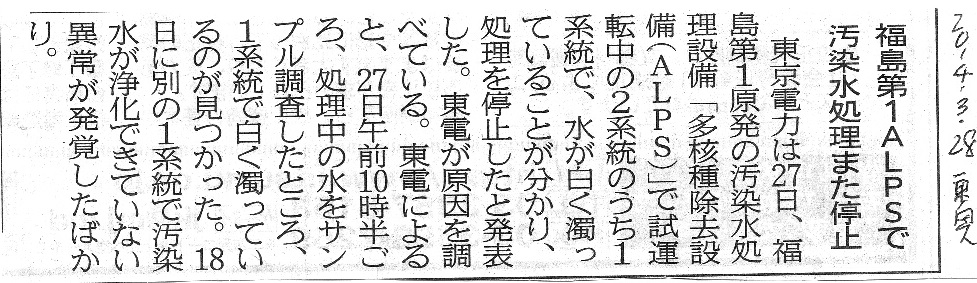 2014.3.28
福島第1ALPSで
汚染水処理また停止
東京電力は27日、福
島第1原発の汚染水処
理設備「多核種除去設
備(ALPS)」で試運
転中の2系統のうち1
系統で、水が白く濁っ
ていることが分かり、
処理を停止したと発表
した。東電が原因を調
べている。東電による
と、27日午前10時半ご
ろ、処理中の水をサン
プル調査したところ、
1系統で白く濁ってい
るのが見つかった。18
日に別の1系統で汚染
水が浄化できていない
異常が発覚したばか
り。